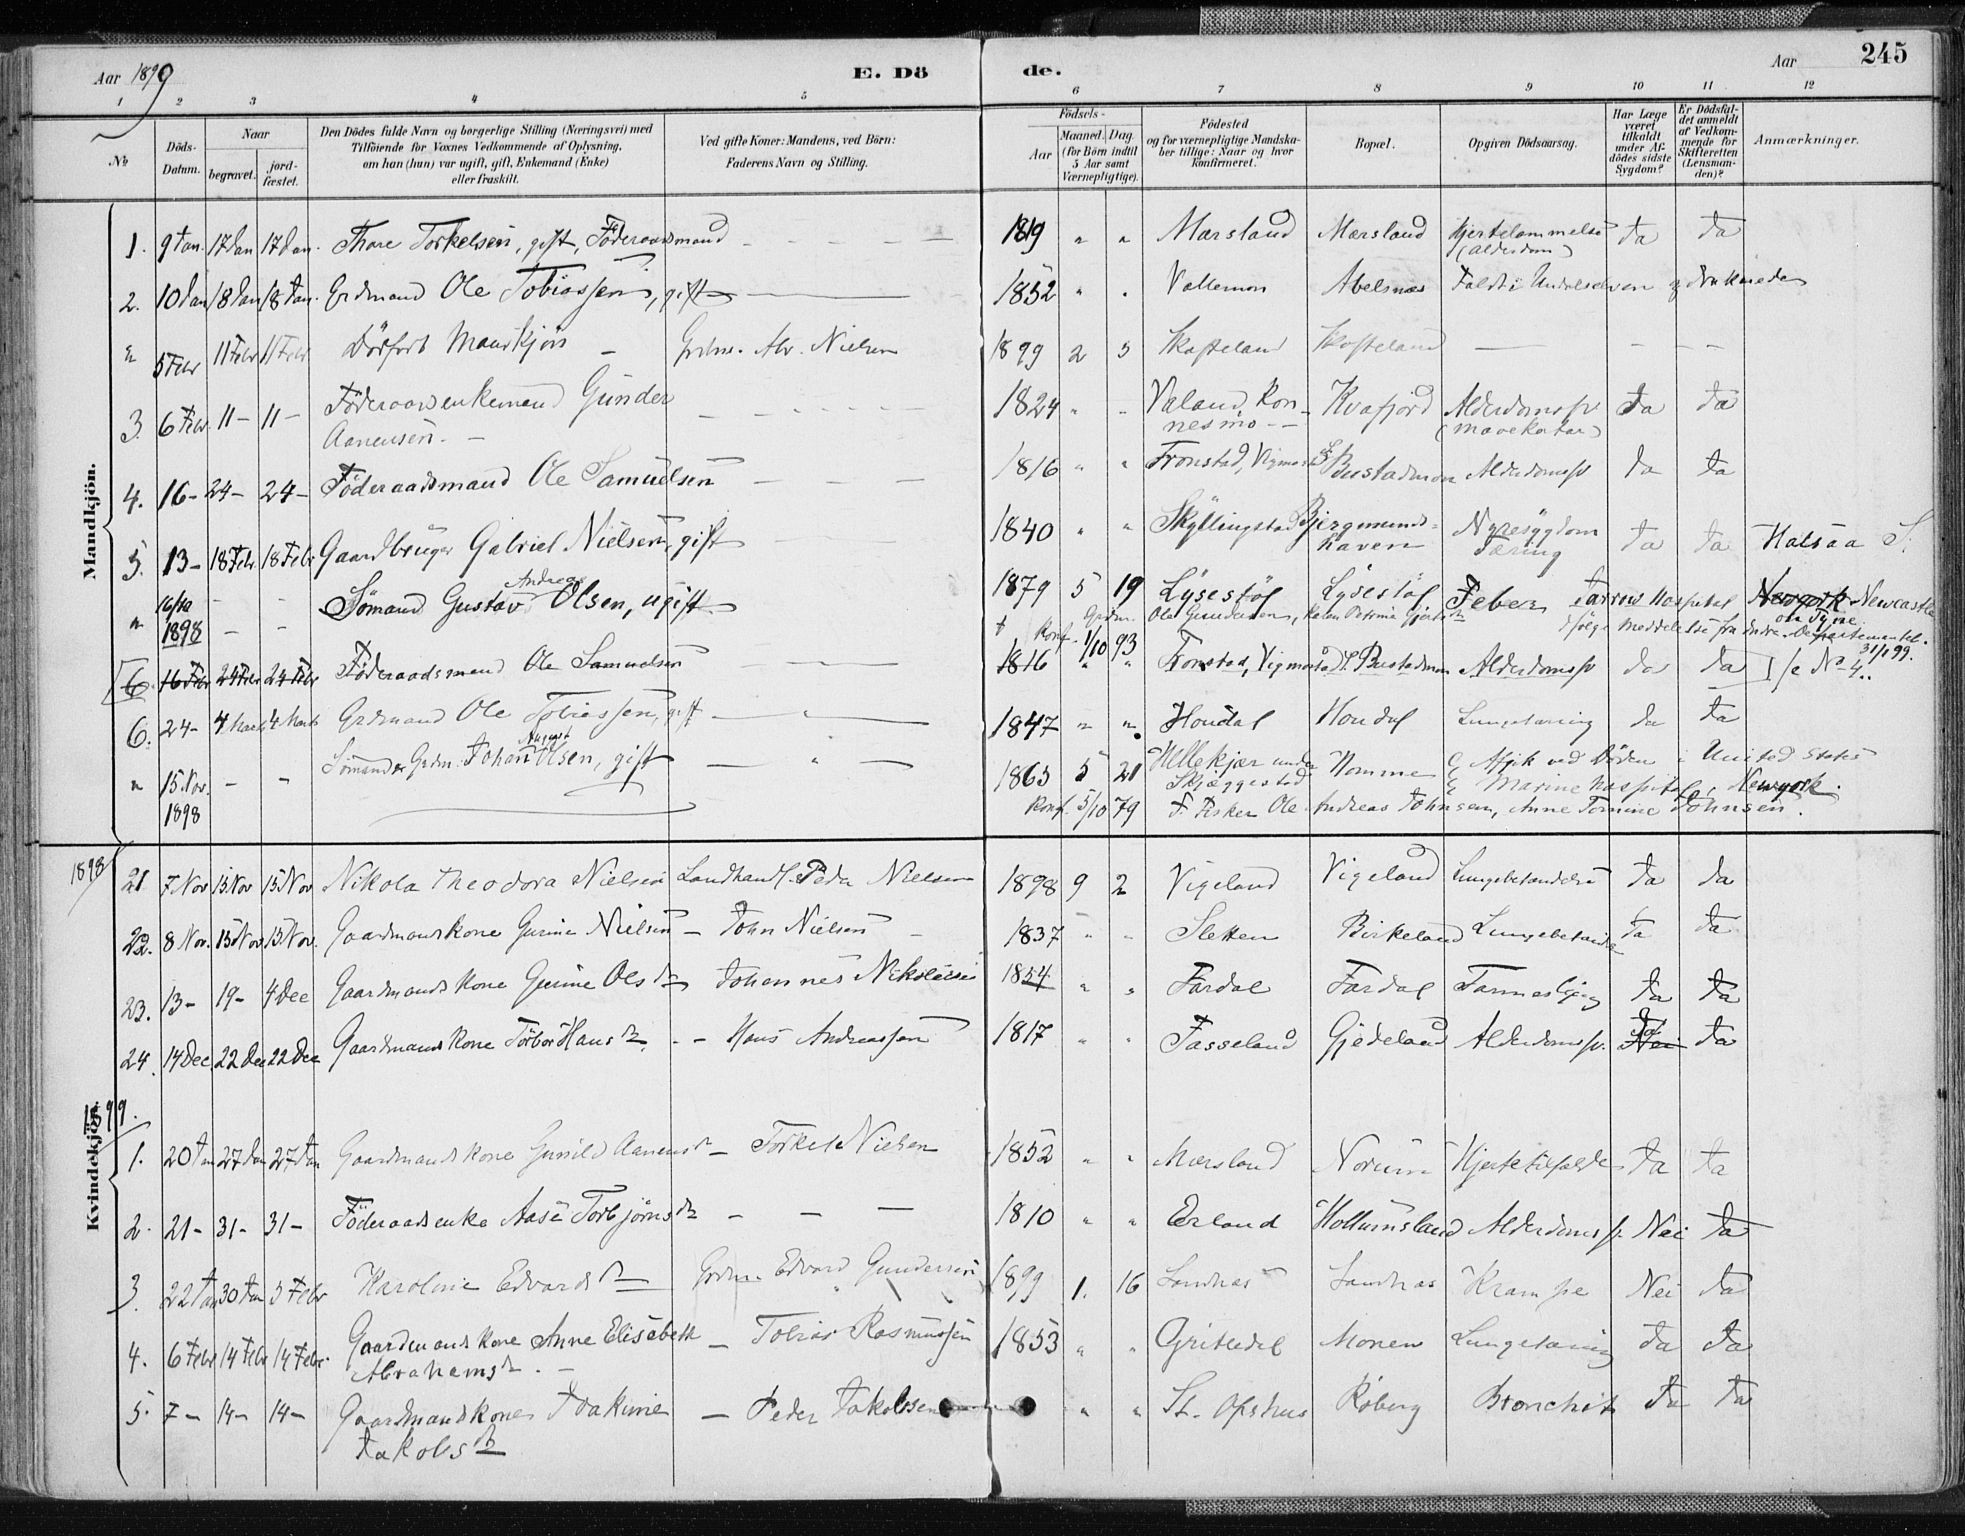 Aar 1899 E. Dö de. Aar 245
1 2 3 4 5 6 7 8 9 10 11 12
№ Döds-Datum. Naar begravet. jord-fæstet.
Den Dödes fulde Navn og borgerlige Stilling (Næringsvei) med Tilföiende for Voxnes Vedkommende af Oplysning, om han (hun) var ugift, gift, Enkemand (Enke) eller fraskilt.
Ved gifte Koner: Mandens, ved Börn: Faderens Navn og Stilling.
Födsels- Aar Maaned. Dag. (for Börn indtil 5 Aar samt Værnepligtige).
Födested og for værnepligtige Mandskaber tillige: Naar og hvor Konfirmeret.
Bopæl.
Opgiven Dödsaarsag.
Har Læge været tilkaldt under Afdödes sidste Sygdom?
Er Dödsfaldet anmeldt af Vedkommende for Skifteretten (Lensmanden)?
Anmærkninger.
Mandkjön.
1. 9 Jan. 17 Jan 17 Jan. Thore Torkelsen, gift, Föderaadsmand 1819 " " Marsland Marsland Hjertelammelse (alderdom) Ja Ja
2. 10 Jan 18 Jan 18 Jan. Grdmand Ole Tobiassen, gift 1852 " " Vallemon Abelsnes Faldt i Undalselven og druknede
" 5 Febr 11 Febr 11 Febr Dödfödt Mandkjön Grdm. Abr. Nielsen 1899 2 5 Skofteland Skofteland
3. 6 Febr 11 - 11 - Föderaadsenkemand Gunder Aanensen 1824 " " Valand, Konnesmo Kvafjord Alderdomssv (mavekatar) Ja Ja
4. 16 - 24 - 24 - Föderaadsmand Ole Samuelsen 1816 " " Fronstad, Vigmostad Bustadmon Alderdomssv Ja Ja
5. 13 - 18 Febr. 18 Febr Gaardbruger Gabriel Nielsen, gift 1840 " " Skyllingstad Bjergmundshaven Nyresygdom Tæring Ja Ja Halsaa S.
" 16/10 1898 - - Sömand Gustav Andreas Olsen, ugift 1879 5 19 Lysestöl Lysestöl Feber Jarrow Hospital Newyork Newcastle on Tyne
Konf. 1/10 93 Grdm. Ole Gundersen, ifölge Meddelelse fra Indre-Departementet 31/1 99.
6. 16 Febr 24 Febr 24 Febr Föderaadsmand Ole Samuelsen 1816 " " Fronstad, Vigmostad Bustadmon Alderdomssv Ja Ja se No 4.
6. 24 - 4 Marts 4 Marts Grdmand Ole Tobiassen, gift 1847 " " Houdal Houdal Lungetæring Ja Ja
" 15 Nov. 1898 - - Sömand Grdm. Johan August Olsen, gift 1863 5 21 Hellekjær under Skjæggestad Homme Afgik ved Döden i United States Marine Hospital, Newyork.
Konf. 5/10 79 F. Fisker Ole Andreas Johnsen, Anne Tomine Johnsen.
Kvindekjön.
1898
21 7 Nov 15 Nov 15 Nov Nikola Theodora Nielsen Landhandl. Peder Nielsen 1898 9 2 Vigeland Vigeland Lungebetændelse Ja Ja
22. 8 Nov. 15 Nov 15 Nov. Gaardmandskone Gurine Nielsen - John Nielsen 1837 " " Sletten Birkeland Lungebetændelse Ja Ja
23. 13 - 19 - 4 Dec Gaardmandskone Gurine Olsdr - Johannes Nikolaisen 1854 " " Fardal Fardal Ja Ja
24. 14 Dec 22 Dec 22 Dec Gaardmandskone Torbor Hansdr. - Hans Andreassen 1817 " " Fasseland Gjedeland Alderdomssv. Nei Ja Ja
1899.
1. 20 Jan 27 Jan 27 Jan Gaardmandskone Gunild Aanensdr - Torkel Nielsen 1852 " " Marsland Norum Hjertetilfælde Ja Ja
2. 21 - 31 - 31 - Föderaadsenke Aase Torbjörnsdr 1810 " " Erland Hollumsland Alderdomssv. Nei Ja
3. 22 Jan 30 Jan 5 Febr Karoline Edvardsdr Grdm. Edvard Gundersen 1899 1. 16 Landnæs Landnæs Krampe Nei Ja
4. 6 Febr 14 Febr 14 Febr. Gaardmandskone Anne Elisabeth Abrahamsdr - Tobias Rasmussen 1853 " " Gristedal Monen Lungetæring Ja Ja
5. 7 - 14 - 14 - Gaardmandskone Joakime Jakobsdr - Peder Jakobsen " " St. Ofshus Röberg Bronchit Ja Ja